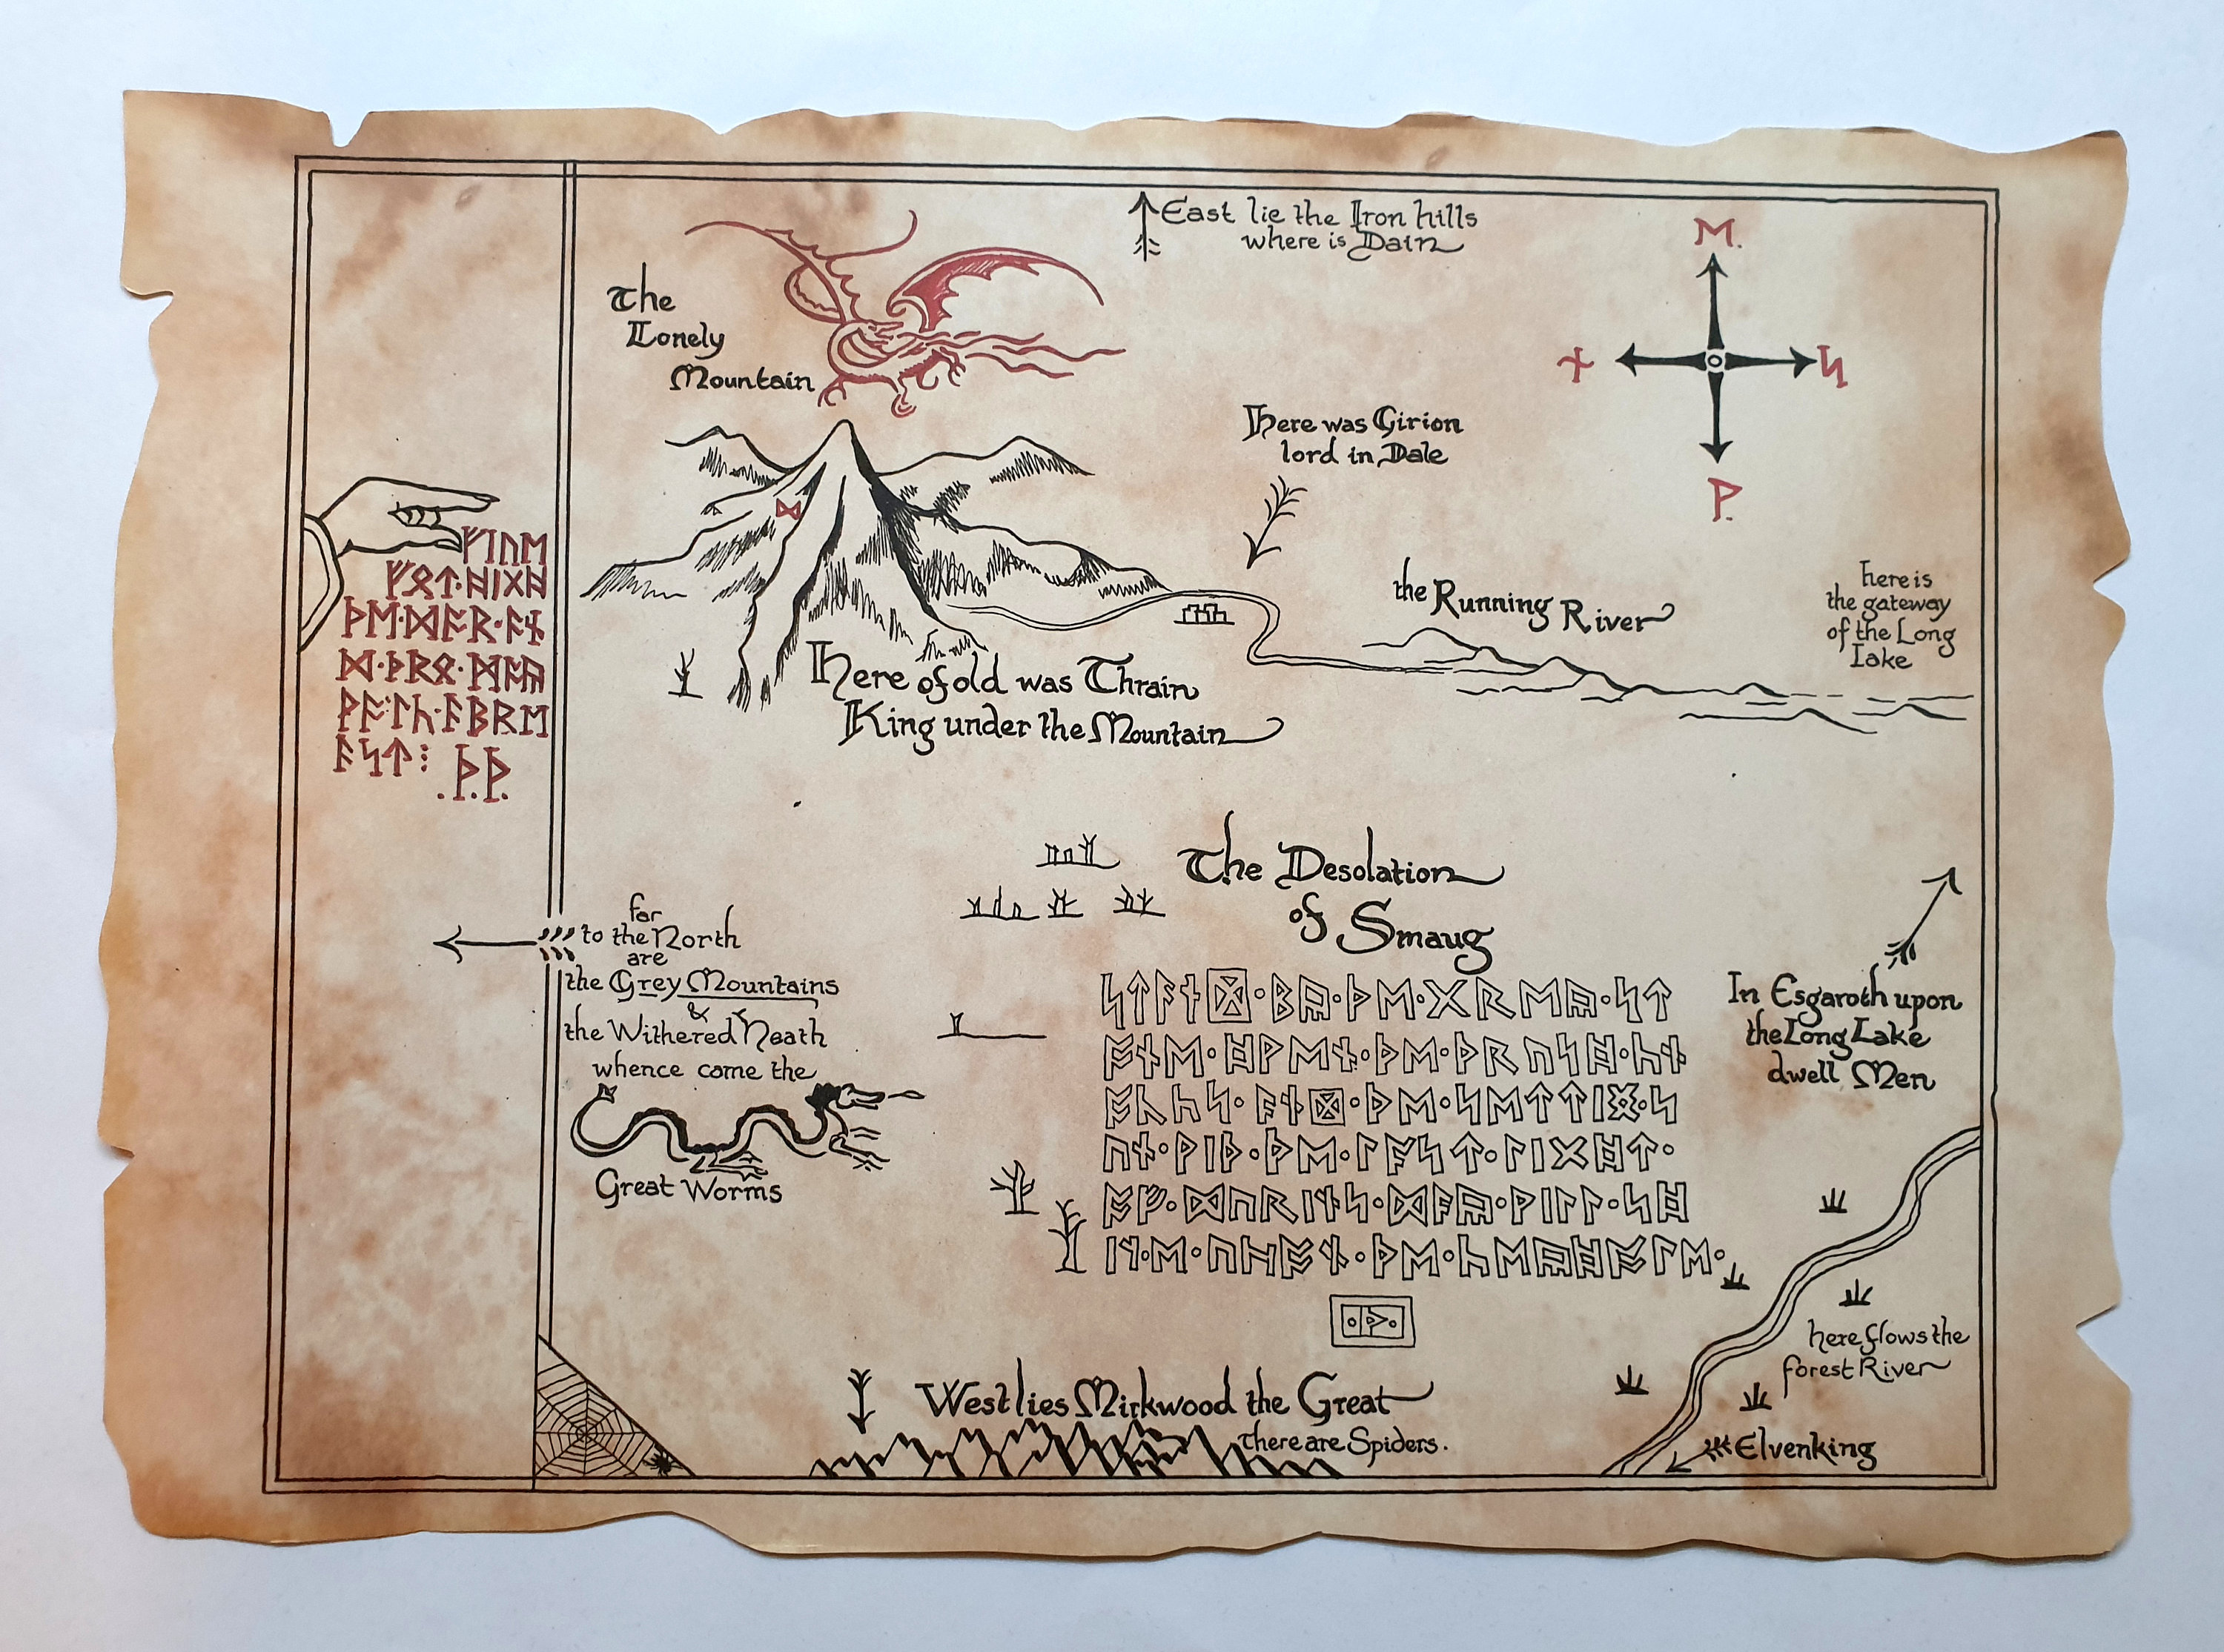 East lie the Iron hills
where is Dain
ᛖ.
ᚾ
ᛋ
ᚹ.
The
Lonely
Mountain
ᛞ
Here was Girion
lord in Dale
ᚠᛁᚢᛖ
ᚠᛟᛏ᛫ᚻᛁᚷᚻ
ᚦᛖ᛫ᛞᚩᚱ᛫ᚪᚾ
ᛞ᛫ᚦᚱᛟ᛫ᛗᚪᚣ
ᚹᚪᛚᚳ᛫ᚪᛒᚱᛖ
ᚪᛋᛏ⁝
.ᚦ.ᚦ.
the Running River
here is
the gateway
of the Long
Lake
Here of old was Thrain
King under the Mountain
The Desolation
of Smaug
far
to the North
are
the Grey Mountains
&
the Withered Heath
whence came the
Great Worms
ᛋᛏᚪᚾᛞ᛫ᛒᚣ᛫ᚦᛖ᛫ᚷᚱᛖᚣ᛫ᛋᛏ
ᚩᚾᛖ᛫ᚻᚹᛖᚾ᛫ᚦᛖ᛫ᚦᚱᚢᛋᚻ᛫ᚳᚾ
ᚩᚳᚳᛋ᛫ᚪᚾᛞ᛫ᚦᛖ᛫ᛋᛖᛏᛏᛁᛝ᛫ᛋ
ᚢᚾ᛫ᚹᛁᚦ᛫ᚦᛖ᛫ᛚᚪᛋᛏ᛫ᛚᛁᚷᚻᛏ᛫
ᚩᚠ᛫ᛞᚢᚱᛁᚾᛋ᛫ᛞᚪᚣ᛫ᚹᛁᛚᛚ᛫ᛋᚻ
ᛁᚾ᛫ᛖ᛫ᚢᛈᚩᚾ᛫ᚦᛖ᛫ᚳᛖᚣᚻᚩᛚᛖ᛫
᛫ᚦ᛫
In Esgaroth upon
the Long Lake
dwell Men
here flows the
forest River
West lies Mirkwood the Great
there are Spiders.
Elvenking